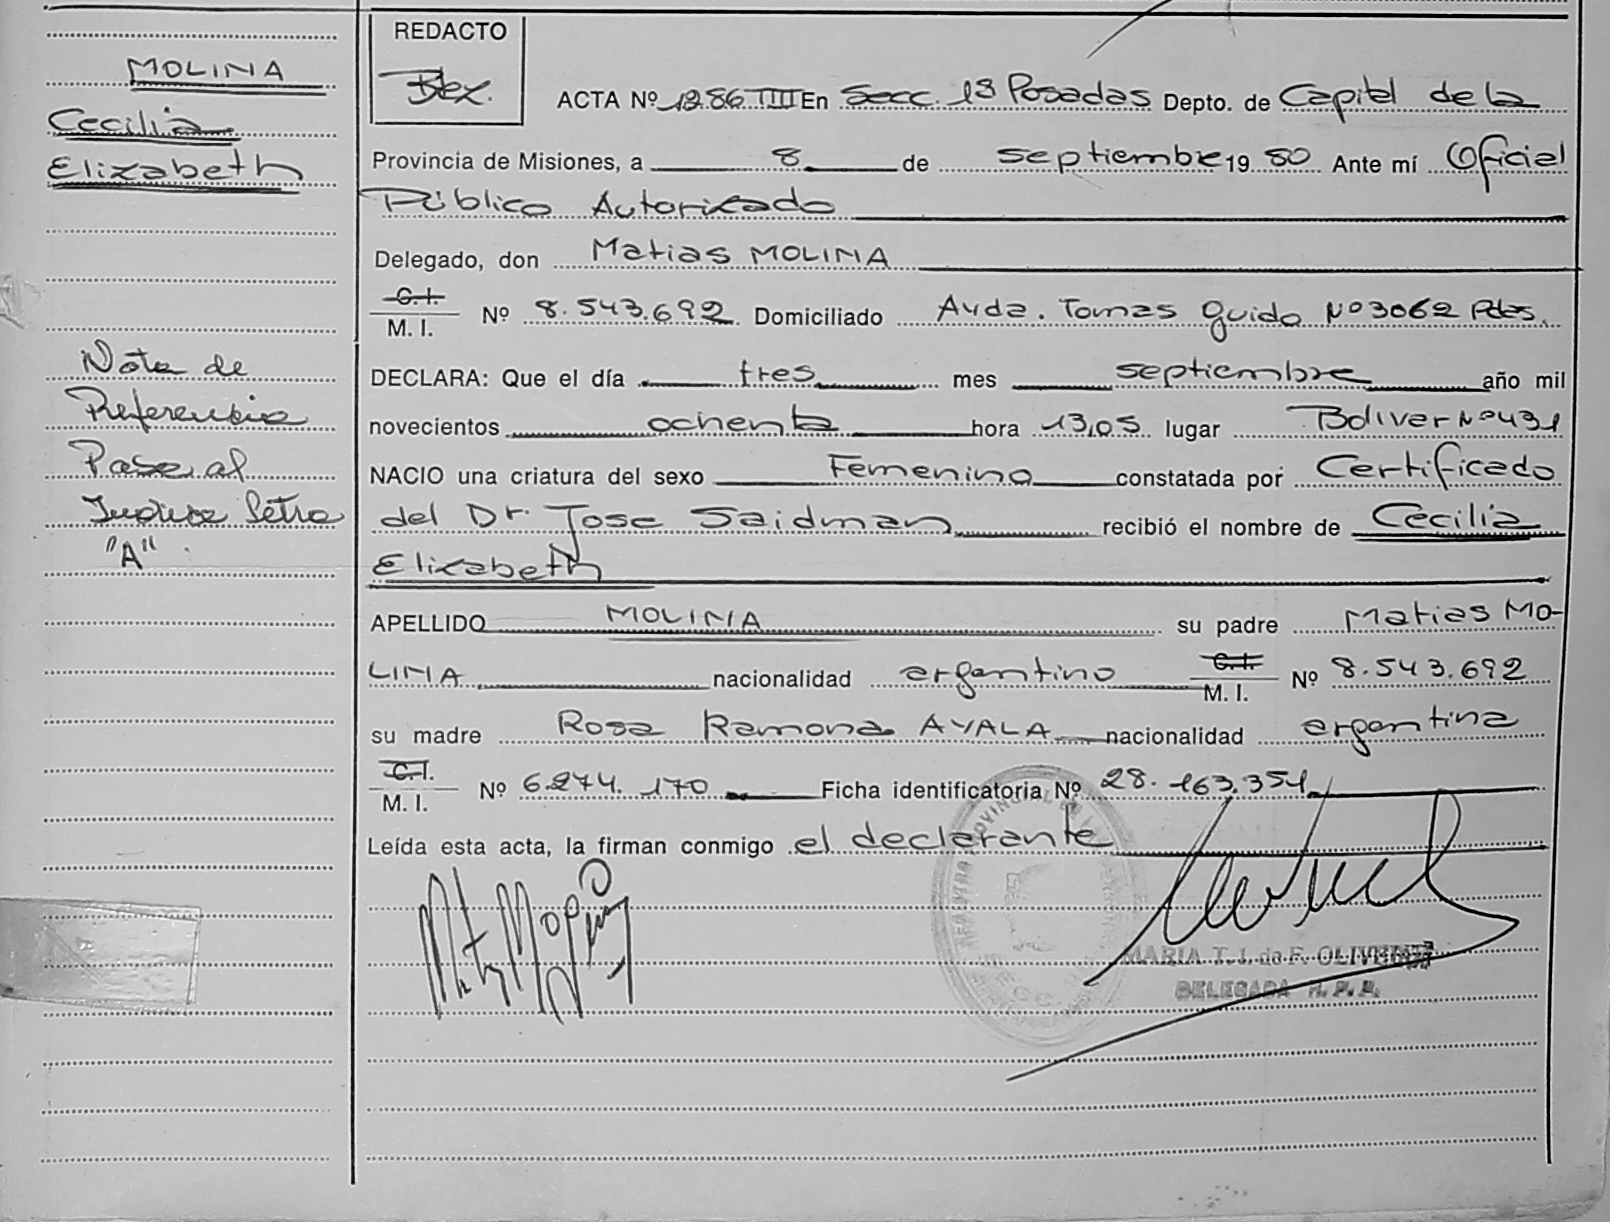 MOLINA
Cecilia
Elizabeth
Nota de
Referencia
Pase al
Indice letra
"A"
REDACTO
ACTA Nº 1286 TIII En Secc. 1ª Posadas Depto. de Capital de la
Provincia de Misiones, a 8 de septiembre 19 80 Ante mí Oficial
Público Autorizado
Delegado, don Matias MOLINA
C.I.
M. I. Nº 8.543.692 Domiciliado Avda. Tomas Guido Nº 3062 Pdas.
DECLARA: Que el día tres mes septiembre año mil
novecientos ochenta hora 13,05 lugar Bolivar Nº 431
NACIO una criatura del sexo Femenino constatada por Certificado
del Dr. Jose Saidman recibió el nombre de Cecilia
Elizabeth
APELLIDO MOLINA su padre Matias MO-
LINA nacionalidad argentino C.I. M. I. Nº 8.543.692
su madre Rosa Ramona AYALA nacionalidad argentina
C.I.
M. I. Nº 6.274.170 Ficha identificatoria Nº 28.163.351
Leída esta acta, la firman conmigo el declarante
MARIA T. J. de F. OLIVEIRA
DELEGADA R. P. P.